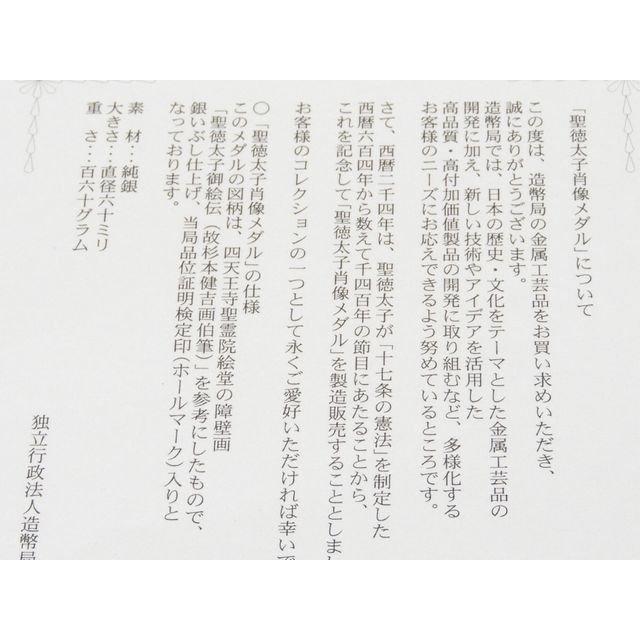 「聖徳太子肖像メダル」について
この度は、造幣局の金属工芸品をお買い求めいただき、
誠にありがとうございます。
造幣局では、日本の歴史・文化をテーマとした金属工芸品の
開発に加え、新しい技術やアイデアを活用した
高品質・高付加価値製品の開発に取り組むなど、多様化する
お客様のニーズにお応えできるよう努めているところです。
さて、西暦二千四年は、聖徳太子が「十七条の憲法」を制定した
西暦六百四年から数えて千四百年の節目にあたることから、
これを記念して「聖徳太子肖像メダル」を製造販売することとしまし
お客様のコレクションの一つとして永くご愛好いただければ幸いで
〇「聖徳太子肖像メダル」の仕様
このメダルの図柄は、四天王寺聖霊院絵堂の障壁画
「聖徳太子御絵伝（故杉本健吉画伯筆）」を参考にしたもので、
銀いぶし仕上げ、当局品位証明検定印（ホールマーク）入りと
なっております。
素　材…純銀
大きさ…直径六十ミリ
重　さ…百六十グラム
独立行政法人造幣局